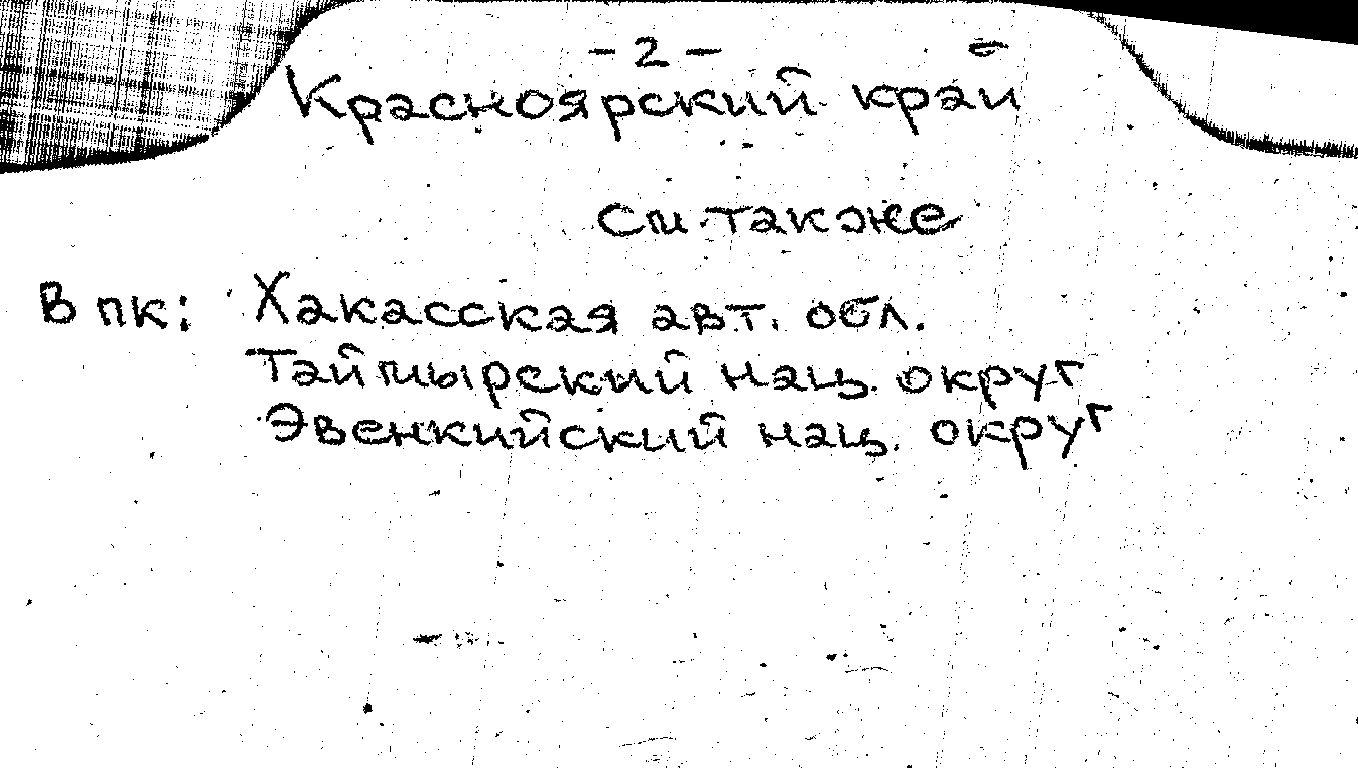 - 2 -
Красноярский край
См. также
В пк: Хакасская авт. обл.
Таймырский нац. округ
Эвенкийский нац. округ